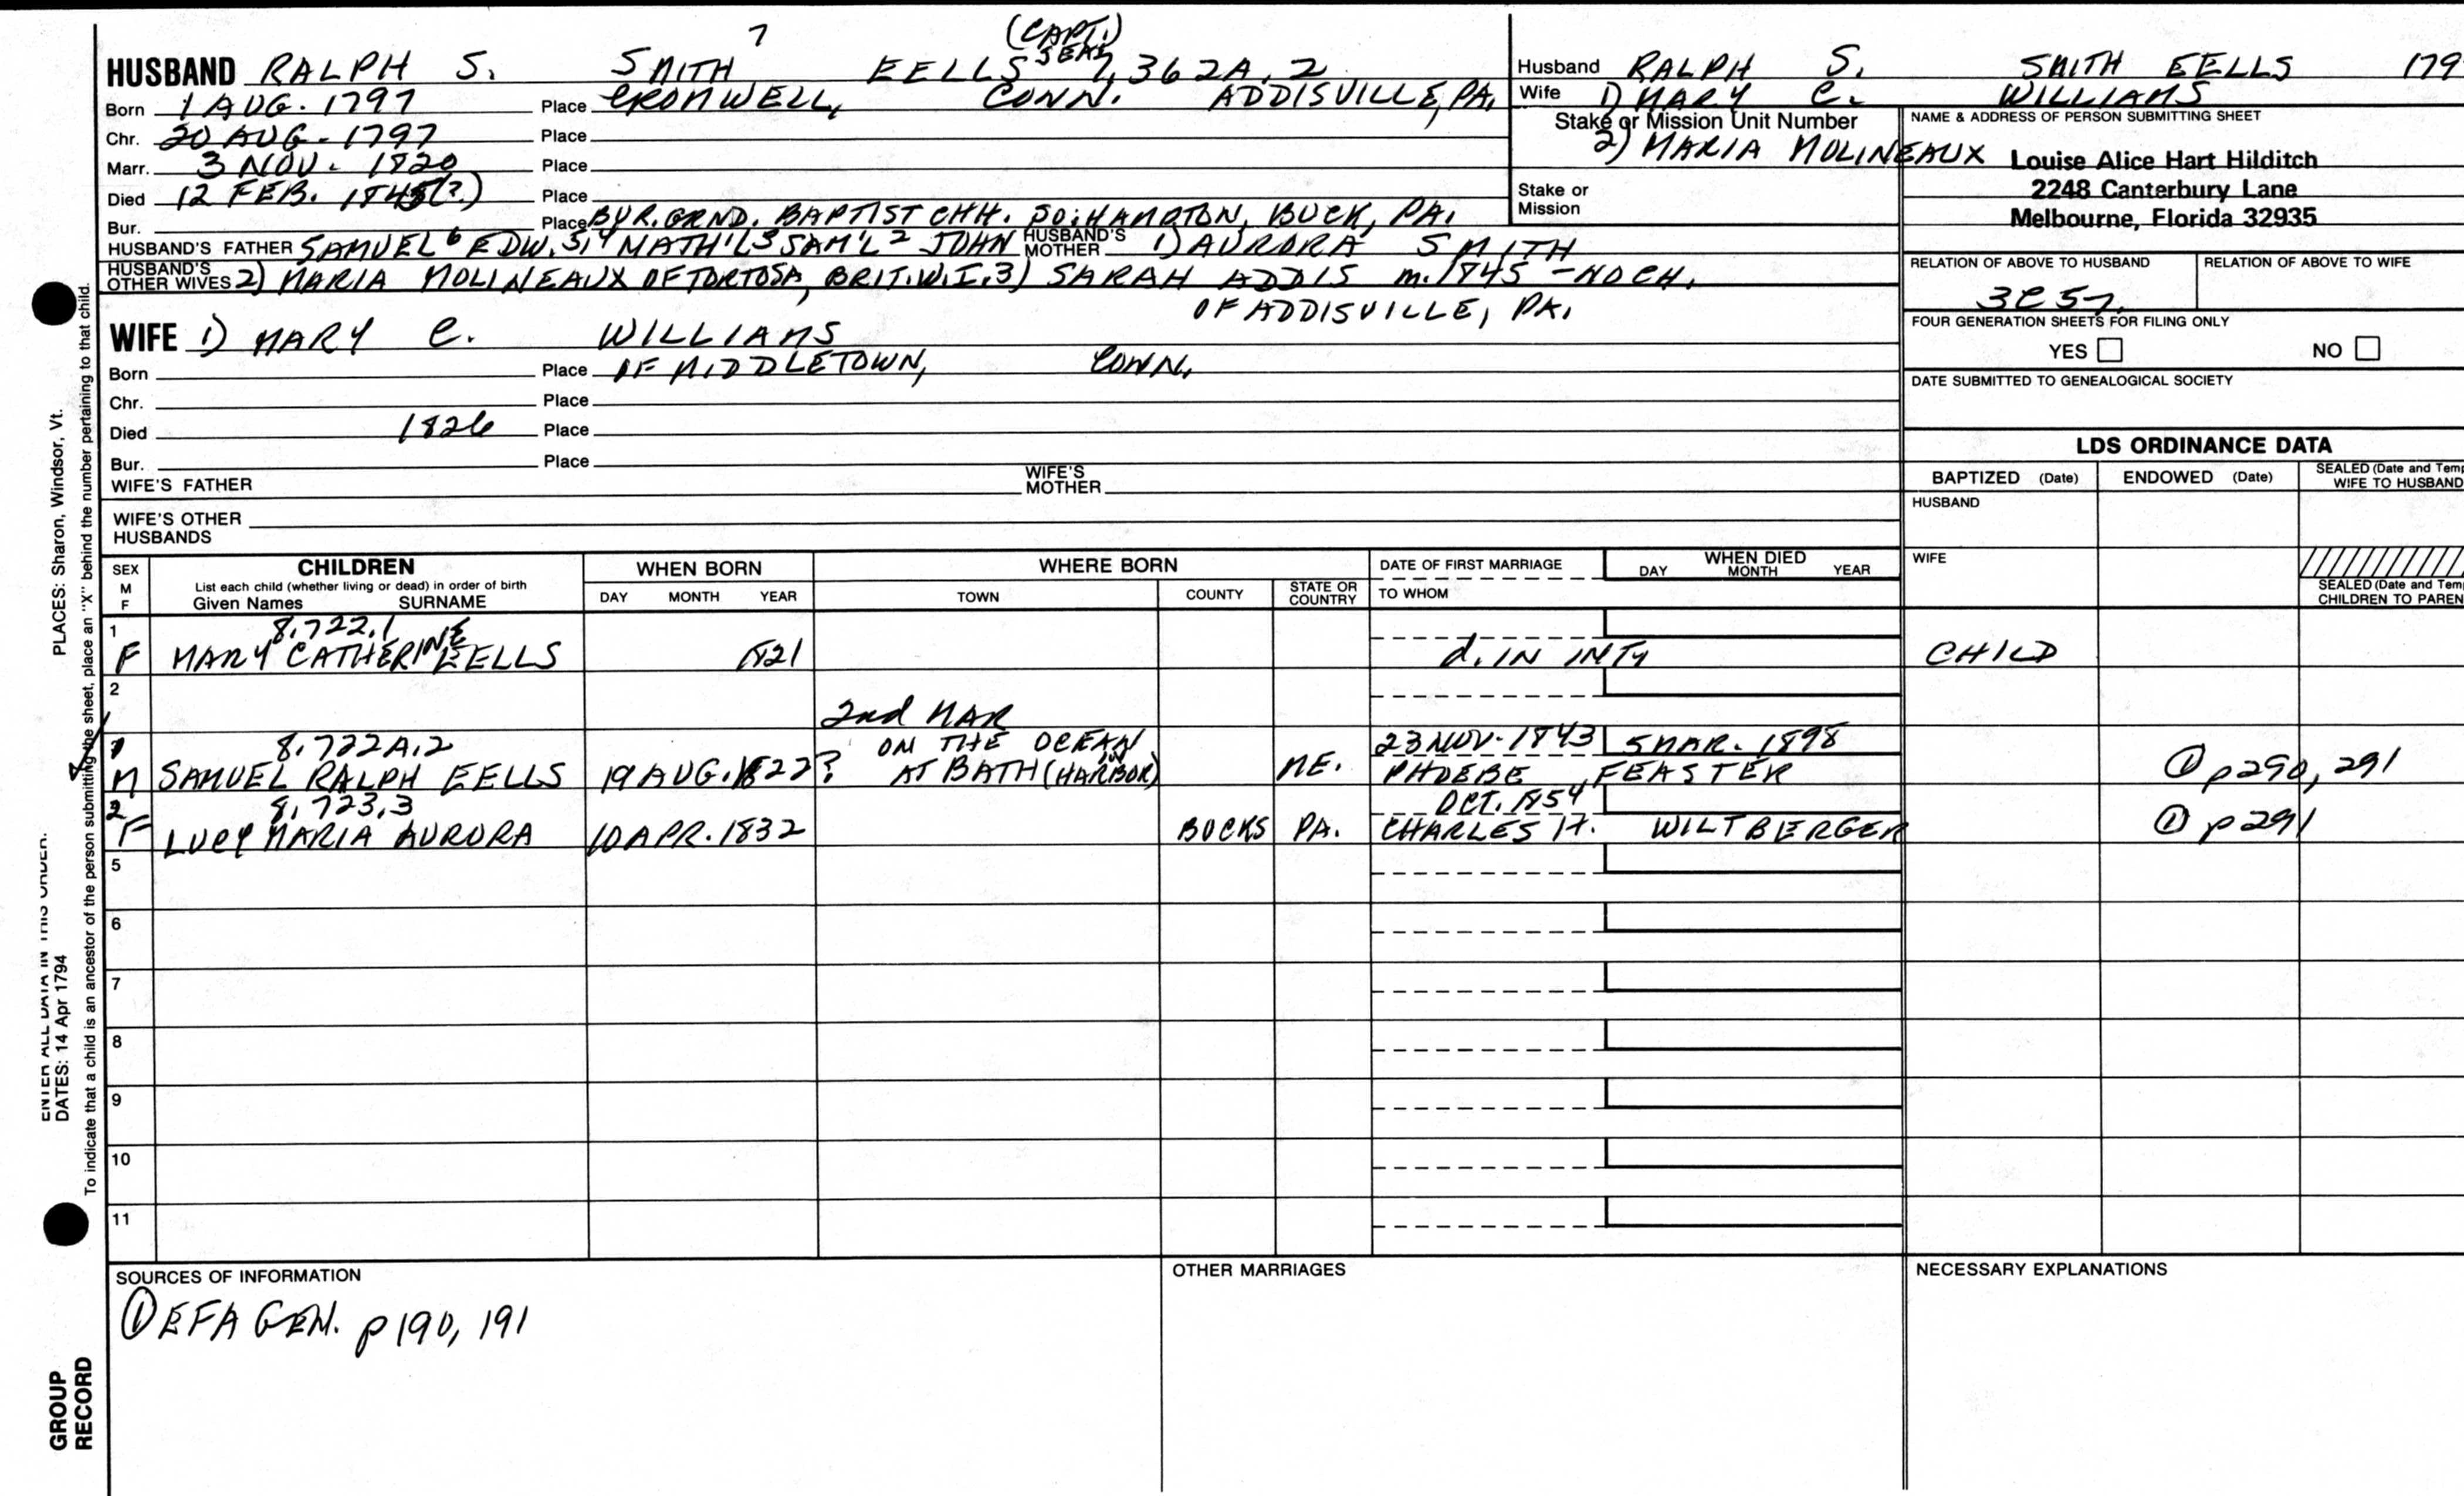 7 (CAPT.)
SEA
HUSBAND RALPH S. SMITH EELLS 7,362A.2
Born 1 AUG. 1797 Place CROMWELL, CONN. ADDISVILLE, PA.
Chr. 20 AUG. 1797 Place
Marr. 3 NOV. 1820 Place
Died 12 FEB. 1845(?) Place
Bur. Place BUR. GRND. BAPTIST CHH. SO. HAMPTON, BUCK, PA.
HUSBAND'S FATHER SAMUEL 6 EDW. 5,4 NATH'L 3 SAM'L 2 JOHN HUSBAND'S MOTHER 1) AURORA SMITH
HUSBAND'S OTHER WIVES 2) MARIA MOLINEAUX OF TORTOSA, BRIT. W. I. 3) SARAH ADDIS m. 1845 - NO CH.
OF ADDISVILLE, PA.
WIFE 1) MARY C. WILLIAMS
Born Place OF MIDDLETOWN, CONN.
Chr. Place
Died 1826 Place
Bur. Place
WIFE'S FATHER WIFE'S MOTHER
WIFE'S OTHER HUSBANDS
Husband RALPH S. SMITH EELLS 179
Wife 1) MARY C. WILLIAMS
Stake or Mission Unit Number
2) MARIA MOLINEAUX
Stake or Mission
NAME & ADDRESS OF PERSON SUBMITTING SHEET
Louise Alice Hart Hilditch
2248 Canterbury Lane
Melbourne, Florida 32935
RELATION OF ABOVE TO HUSBAND RELATION OF ABOVE TO WIFE
3C5
FOUR GENERATION SHEETS FOR FILING ONLY
YES NO
DATE SUBMITTED TO GENEALOGICAL SOCIETY
LDS ORDINANCE DATA
BAPTIZED (Date) ENDOWED (Date) SEALED (Date and Temp
WIFE TO HUSBAND
HUSBAND
WIFE
SEALED (Date and Temp
CHILDREN TO PAREN
SEX M F
CHILDREN
List each child (whether living or dead) in order of birth
Given Names SURNAME
WHEN BORN
DAY MONTH YEAR
WHERE BORN
TOWN COUNTY STATE OR COUNTRY
DATE OF FIRST MARRIAGE
TO WHOM
WHEN DIED
DAY MONTH YEAR
1 8.722.1
F MARY CATHERINE EELLS 1821 d. IN INTY CHILD
2
2nd MAR
8.722A.2 ON THE OCEAN 23 NOV. 1843 5 MAR. 1898
M SAMUEL RALPH EELLS 19 AUG. 1822? AT BATH (HARBOR) ME. PHOEBE FEASTER ① p290, 291
2 8,723.3 OCT. 1854
F LUCY MARIA AURORA 10 APR. 1832 BUCKS PA. CHARLES H. WILTBERGER ① p291
5
6
7
8
9
10
11
SOURCES OF INFORMATION
① EFA GEN. p190, 191
OTHER MARRIAGES
NECESSARY EXPLANATIONS
PLACES: Sharon, Windsor, Vt.
ENTER ALL DATA IN THIS ORDER:
DATES: 14 Apr 1794
To indicate that a child is an ancestor of the person submitting the sheet, place an "X" behind the number pertaining to that child.
GROUP
RECORD